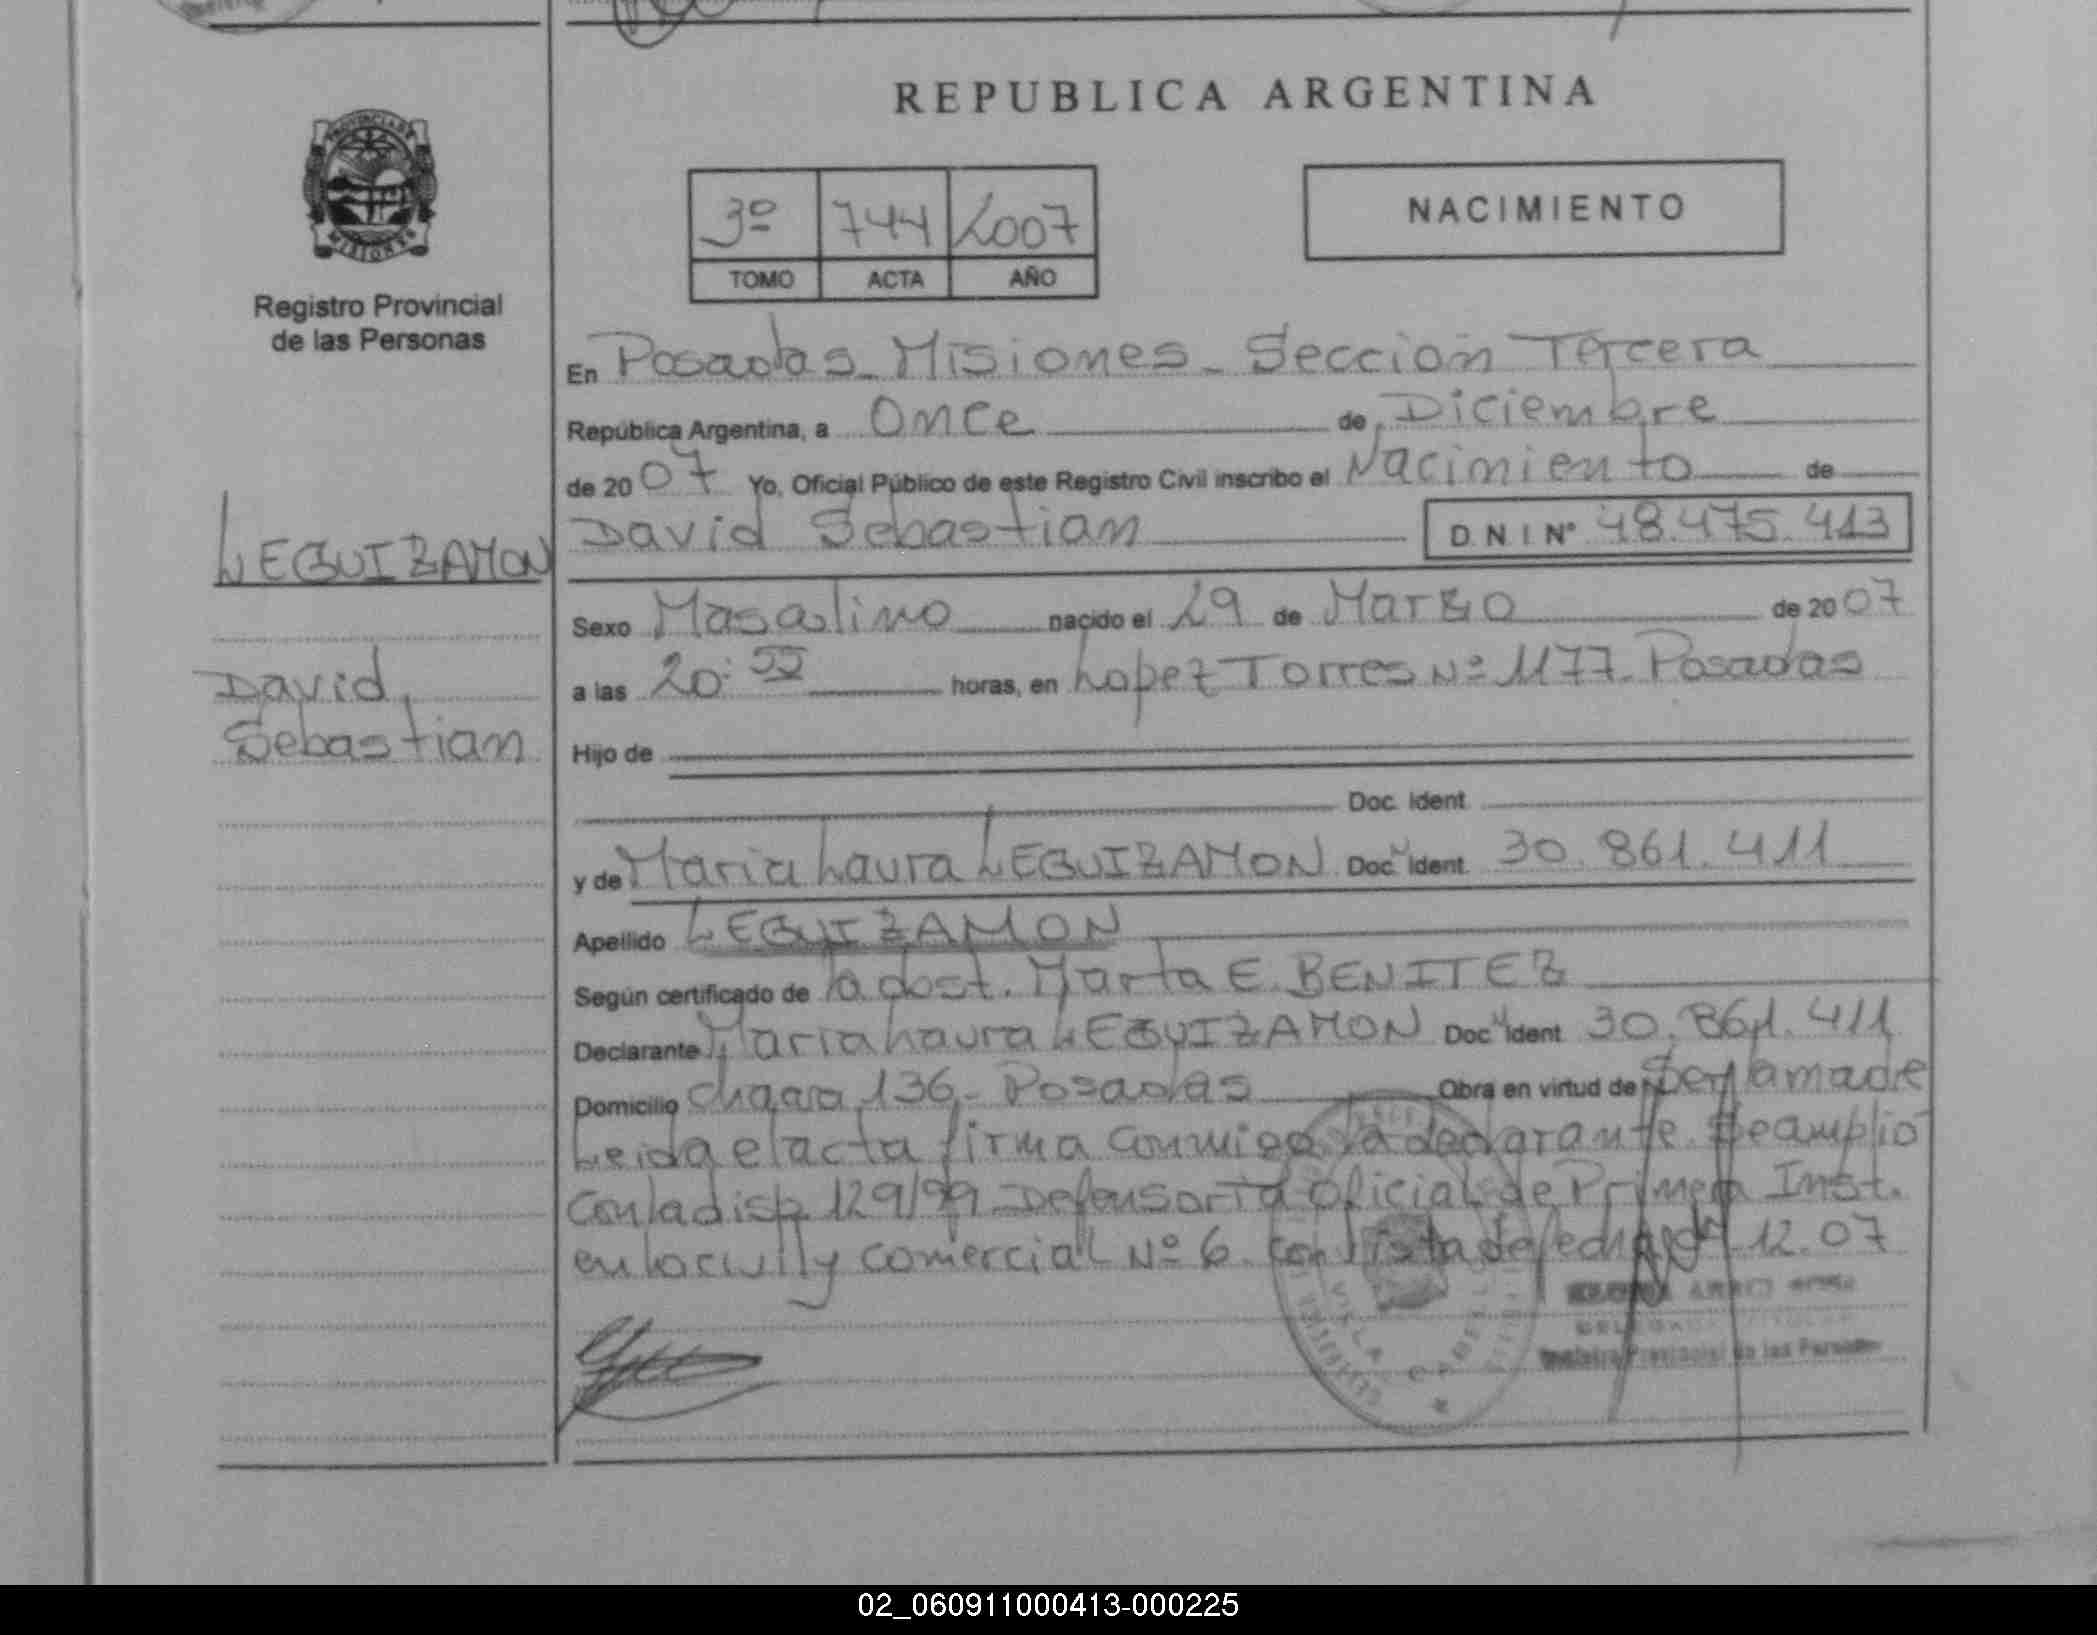 REPUBLICA ARGENTINA
PROVINCIA DE
MISIONES
Registro Provincial
de las Personas
3º 744 2007
TOMO ACTA AÑO
NACIMIENTO
En Posadas - Misiones - Sección Tercera
República Argentina, a Once de Diciembre
de 2007 Yo, Oficial Público de este Registro Civil inscribo el Nacimiento de
LEGUIZAMON
David Sebastian D N I Nº 48.475.413
Sexo Masculino nacido el 29 de Marzo de 2007
David
a las 20:55 horas, en Lopez Torres Nº 1177. Posadas
Sebastian
Hijo de
Doc. Ident.
y de Maria Laura LEGUIZAMON Doc. Ident. 30.861.411
Apellido LEGUIZAMON
Según certificado de la obst. Marta E. BENITEZ
Declarante Maria Laura LEGUIZAMON Doc. Ident. 30.861.411
Domicilio chacra 136 - Posadas Obra en virtud de Ser la madre
Leida el acta firma conmigo la declarante. Se amplió
con la disp. 129/99 Defensoria Oficial de Primera Inst.
en lo civil y comercial Nº 6. con lista de fecha 12.07
VILLA CABELLO
Registro Provincial de las Personas
02_060911000413-000225